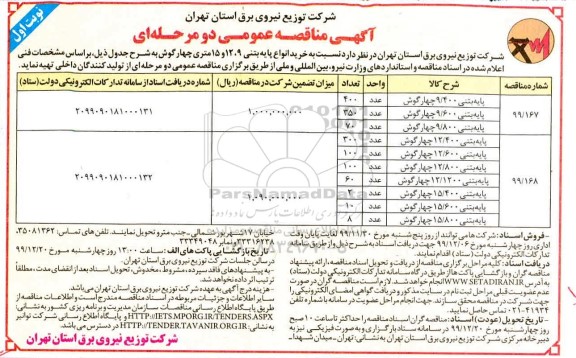 شرکت توزیع نیروی برق استان تهران
نوبت اول
آگهی مناقصه عمومی دو مرحله‌ای
شرکت توزیع نیروی برق استان تهران در نظر دارد نسبت به خرید انواع پایه بتنی ۹و۱۲و ۱۵ متری چهارگوش به شرح جدول ذیل، بر اساس مشخصات فنی
اعلام شده در اسناد مناقصه و استانداردهای وزارت نیرو، بین المللی و ملی از طریق برگزاری مناقصه عمومی دو مرحله‌ای از تولید کنندگان داخلی تهیه نماید
شماره مناقصه شرح کالا واحد تعداد میزان تضمین شرکت در مناقصه (ریال) شماره دریافت اسناد از سامانه تدارکات الکترونیکی دولت (ستاد)
۹۹/۱۶۷ پایه بتنی ۹/۴۰۰ چهارگوش عدد ۴۰۰ ۱,۰۰۰,۰۰۰,۰۰۰ ۲۰۹۹۰۹۰۱۸۱۰۰۰۱۳۱
پایه بتنی ۹/۶۰۰ چهارگوش عدد ۳۵۰
پایه بتنی ۹/۸۰۰ چهارگوش عدد ۷۰
۹۹/۱۶۸ پایه بتنی ۱۲/۴۰۰ چهارگوش عدد ۳۰۰ ۲۰۹۹۰۹۰۱۸۱۰۰۰۱۳۲
پایه بتنی ۱۲/۶۰۰ چهارگوش عدد ۱۰۰
پایه بتنی ۱۲/۸۰۰ چهارگوش عدد ۱۰۰
پایه بتنی ۱۲/۱۲۰۰ چهارگوش عدد ۶۰
پایه بتنی ۱۵/۴۰۰ چهارگوش عدد
پایه بتنی ۱۵/۶۰۰ چهارگوش عدد ۱۰
پایه بتنی ۱۵/۸۰۰ چهارگوش عدد
ParsNamadData
- فروش اسناد: شرکت‌ها می توانند از روز پنج شنبه مورخ ۹۹/۱۱/۳۰ لغایت پایان وقت
اداری روز چهارشنبه مورخ ۹۹/۱۲/۰۶ جهت دریافت اسناد به شرح ذیل و از طریق سامانه
تدارکات الکترونیکی دولت (ستاد) اقدام نمایند.
- دریافت اسناد: کلیه مراحل برگزاری مناقصه از دریافت و تحویل اسناد مناقصه تا ارائه پیشنهاد
مناقصه گران و بازگشایی پاکت‌ها از طریق درگاه سامانه تدارکات الکترونیکی دولت (ستاد)
به آدرس WWW.SETADIRAN.IR انجام خواهد شد. لازم است مناقصه گران در صورت
عدم عضویت قبلی مراحل ثبت نام در سایت مذکور و دریافت گواهی امضای الکترونیکی را
جهت شرکت در مناقصه محقق سازند. جهت انجام مراحل عضویت در سامانه با شماره تلفن
۰۲۱-۴۱۹۳۴ تماس حاصل نمایید.
- تاریخ تحویل (عودت) اسناد: مناقصه گران اسناد مناقصه را حداکثر تا ساعت ۱۰ صبح
روز چهارشنبه مورخ ۹۹/۱۲/۲۰ در سامانه ستاد بارگزاری و به صورت فیزیکی نیز به
دبیرخانه مرکزی شرکت توزیع نیروی برق استان تهران به نشانی: تهران- میدان شهدا-
خیابان ۱۷ شهریور شمالی- جنب مترو تحویل نمایند. تلفن های تماس: ۳۵۰۸۱۳۶۲،
۳۳۳۱۶۲۳۸ و نمابر ۳۳۳۴۹۰۴۸
- تاریخ بازگشایی پاکت های الف: ساعت ۱۳:۰۰ روز چهارشنبه مورخ ۹۹/۱۲/۲۰
در سالن جلسات شرکت توزیع نیروی برق استان تهران.
- به پیشنهادهای فاقد سپرده، مشروط، مخدوش، تحویل اسناد بعد از انقضای مدت، مطلقاً
ترتیب اثر داده نخواهد شد.
- هزینه درج آگهی به عهده شرکت توزیع نیروی برق استان تهران می باشد.
سایر اطلاعات و جزئیات مربوط در اسناد مناقصه مندرج است و اطلاعات مناقصه از
طریق پایگاه اطلاع رسانی مناقصات سازمان مدیریت و برنامه ریزی کشور به نشانی:
HTTP://IETS.MPORG.IR/TENDERS.ASPX و پایگاه اطلاع رسانی شرکت توانیر
به نشانی: HTTP://TENDER.TAVANIR.ORG.IR در دسترس می باشد.
شرکت توزیع نیروی برق استان تهران